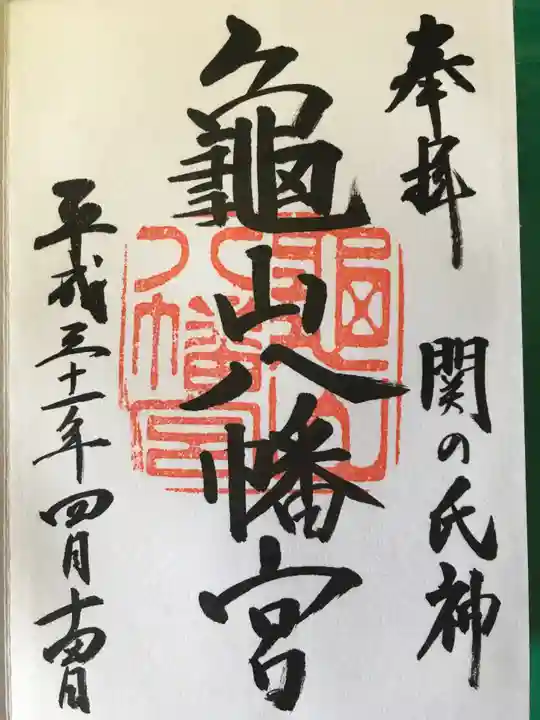 奉拝
関の氏神
龜山八幡宮
平成三十一年四月十四日